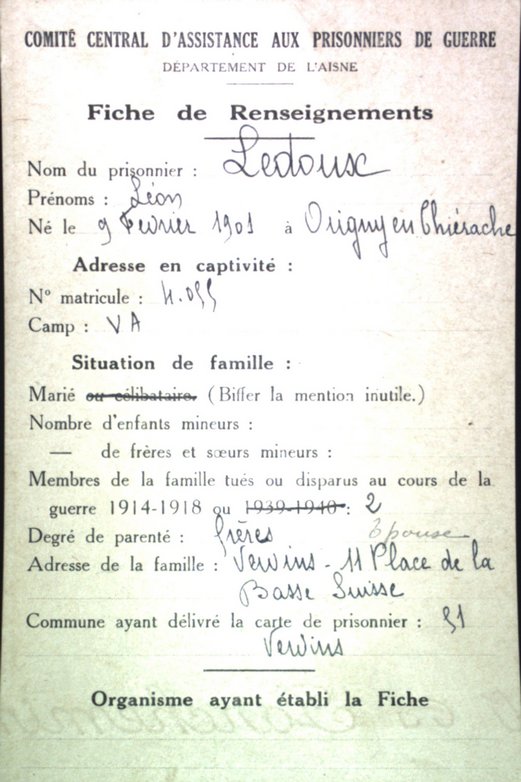 COMITÉ CENTRAL D'ASSISTANCE AUX PRISONNIERS DE GUERRE
DÉPARTEMENT DE L'AISNE
Fiche de Renseignements
Nom du prisonnier : Ledoux
Prénoms : Léon
Né le 9 Février 1901 à Origny en Thiérache
Adresse en captivité :
N° matricule : 4.055
Camp : VA
Situation de famille :
Marié ou célibataire. (Biffer la mention inutile.)
Nombre d'enfants mineurs :
— de frères et sœurs mineurs :
Membres de la famille tués ou disparus au cours de la
guerre 1914-1918 ou 1939-1940 : 2
Degré de parenté : frères épouse
Adresse de la famille : Vervins - 11 Place de la
Basse Suisse
Commune ayant délivré la carte de prisonnier : 51
Vervins
Organisme ayant établi la Fiche